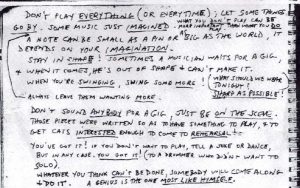 DON'T PLAY EVERYTHING (OR EVERYTIME); LET SOME THINGS
GO BY. SOME MUSIC JUST IMAGINED. WHAT YOU DON'T PLAY CAN BE
MORE IMPORTANT THAN WHAT YOU DO
A NOTE CAN BE SMALL AS A PIN OR AS BIG AS THE WORLD, IT
DEPENDS ON YOUR IMAGINATION.
STAY IN SHAPE! SOMETIMES A MUSICIAN WAITS FOR A GIG,
& WHEN IT COMES, HE'S OUT OF SHAPE & CAN'T MAKE IT.
WHEN YOU'RE SWINGING, SWING SOME MORE!
WHAT SHOULD WE WEAR
TONIGHT?
SHARP AS POSSIBLE!
ALWAYS LEAVE THEM WANTING MORE.
DON'T SOUND ANYBODY FOR A GIG, JUST BE ON THE SCENE.
THOSE PIECES WERE WRITTEN SO AS TO HAVE SOMETHING TO PLAY, & TO
GET CATS INTERESTED ENOUGH TO COME TO REHEARSAL!
YOU'VE GOT IT! IF YOU DON'T WANT TO PLAY, TELL A JOKE OR DANCE,
BUT IN ANY CASE, YOU GOT IT! (TO A DRUMMER WHO DIDN'T WANT TO
SOLO).
WHATEVER YOU THINK CAN'T BE DONE, SOMEBODY WILL COME ALONG
& DO IT. A GENIUS IS THE ONE MOST LIKE HIMSELF.